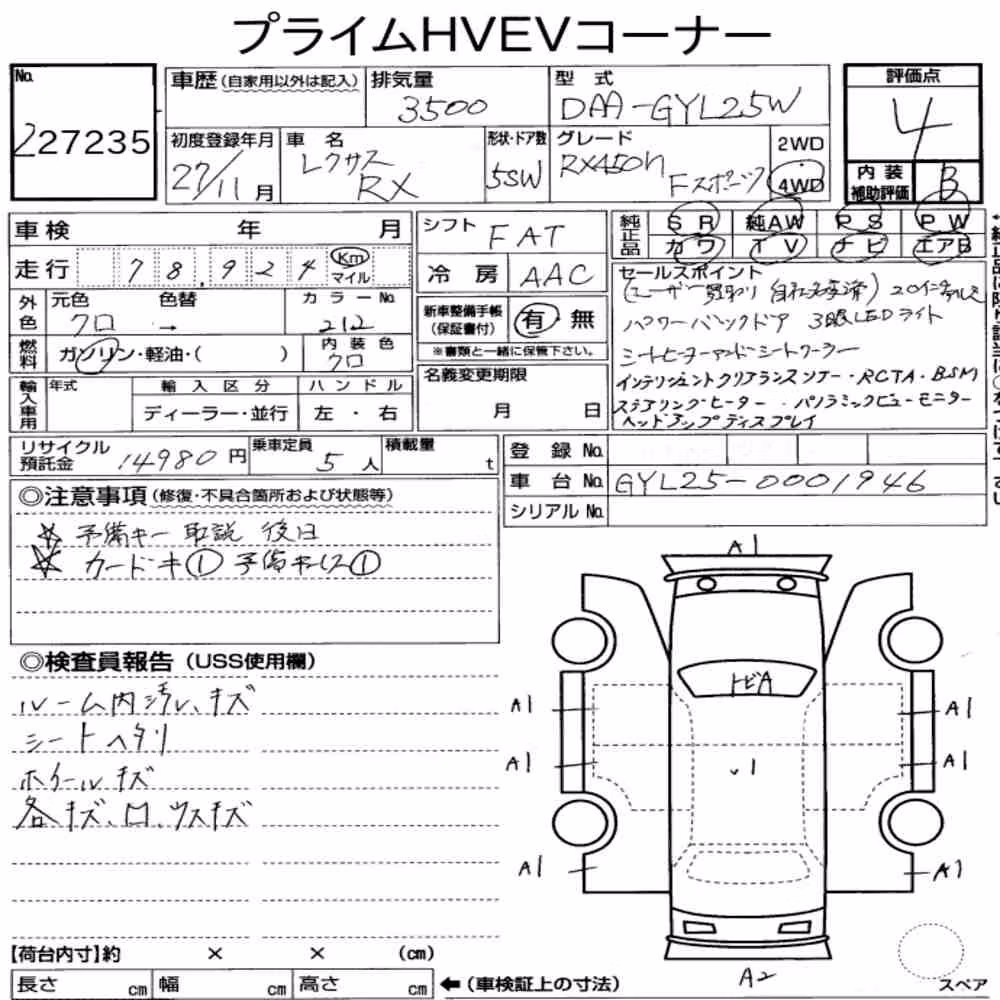 プライムHVEVコーナー
No. 227235
車歴(自家用以外は記入)
排気量 3500
型式 DAA-GYL25W
評価点 4
内装補助評価 B
初度登録年月 27/11月
車名 レクサス RX
形状・ドア数 5SW
グレード RX450h Fスポーツ
2WD
4WD
車検 年 月
走行 78,924 Km マイル
シフト FAT
冷房 AAC
純正品 SR 純AW PS PW
カワ TV ナビ エアB
外色 元色 クロ → 色替 カラーNo 212
燃料 ガソリン・軽油・( )
内装色 クロ
新車整備手帳(保証書付) 有 無
※書類と一緒に保管下さい。
セールスポイント
(ユーザー買取り 自社名変済) 20インチアルミ
パワーバックドア 3眼LEDライト
シートヒーターアンドシートクーラー
インテリジェントクリアランスソナー・RCTA・BSM
ステアリングヒーター・パノラミックビューモニター
ヘッドアップディスプレイ
輸入車用 年式 輸入区分 ハンドル
ディーラー・並行 左・右
名義変更期限
月 日
リサイクル預託金 14980円
乗車定員 5人
積載量 t
登録No.
車台No. GYL25-0001946
シリアルNo.
◎注意事項(修復・不具合箇所および状態等)
☆ 予備キー 取説 後日
☆ カードキ① 予備キーレス①
◎検査員報告(USS使用欄)
ルーム内汚レ、キズ
シートヘタリ
ホイールキズ
各キズ、凹、ウスキズ
A1
トビA
A1 A1
A1 A1
v1
A1 A1
A2
スペア
【荷台内寸】約 × × (cm)
長さ cm 幅 cm 高さ cm
←(車検証上の寸法)